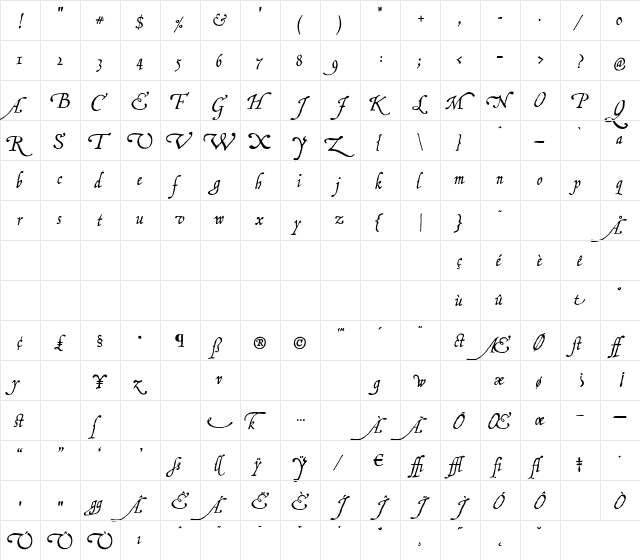 ! " # $ % & ' ( ) * + , - . / 0
1 2 3 4 5 6 7 8 9 : ; < - > ? @
A B C E F G H I J K L M N O P Q
R S T U V W X Y Z { \ } ^ _ ` a
b c d e f g h i j k l m n o p q
r s t u v w x y z { | } Å
ç é è ê
ù û t °
¢ £ § • ¶ ß ® © ™ ´ ¨ ct Æ Ø st ff
y ¥ z v g w æ ø ¡
ſ k … À Ã Õ Œ œ – —
“ ” ‘ ’ ll ÿ Ÿ / € ffi ffl fi fl ‡ ·
' " gg Â Ê Á Ë È Í Î Ï Ì Ó Ô Ò
Ú Û Ù ı